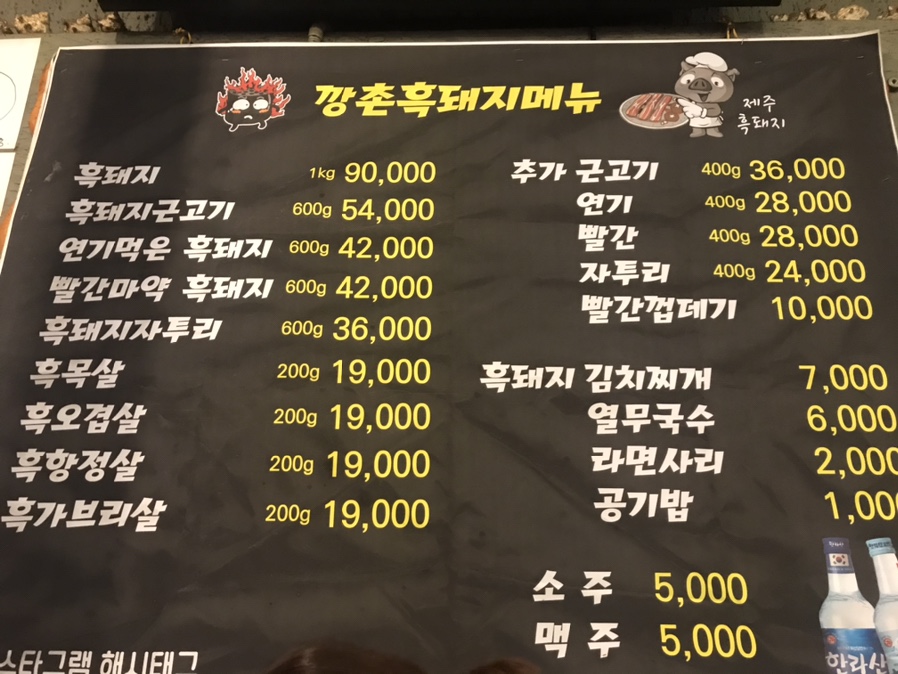 깡촌흑돼지메뉴
제주
흑돼지
흑돼지 1kg 90,000
흑돼지근고기 600g 54,000
연기먹은 흑돼지 600g 42,000
빨간마약 흑돼지 600g 42,000
흑돼지자투리 600g 36,000
흑목살 200g 19,000
흑오겹살 200g 19,000
흑항정살 200g 19,000
흑가브리살 200g 19,000
추가 근고기 400g 36,000
연기 400g 28,000
빨간 400g 28,000
자투리 400g 24,000
빨간껍데기 10,000
흑돼지 김치찌개 7,000
열무국수 6,000
라면사리 2,000
공기밥 1,000
소 주 5,000
맥 주 5,000
한라산
스타그램 해시태그